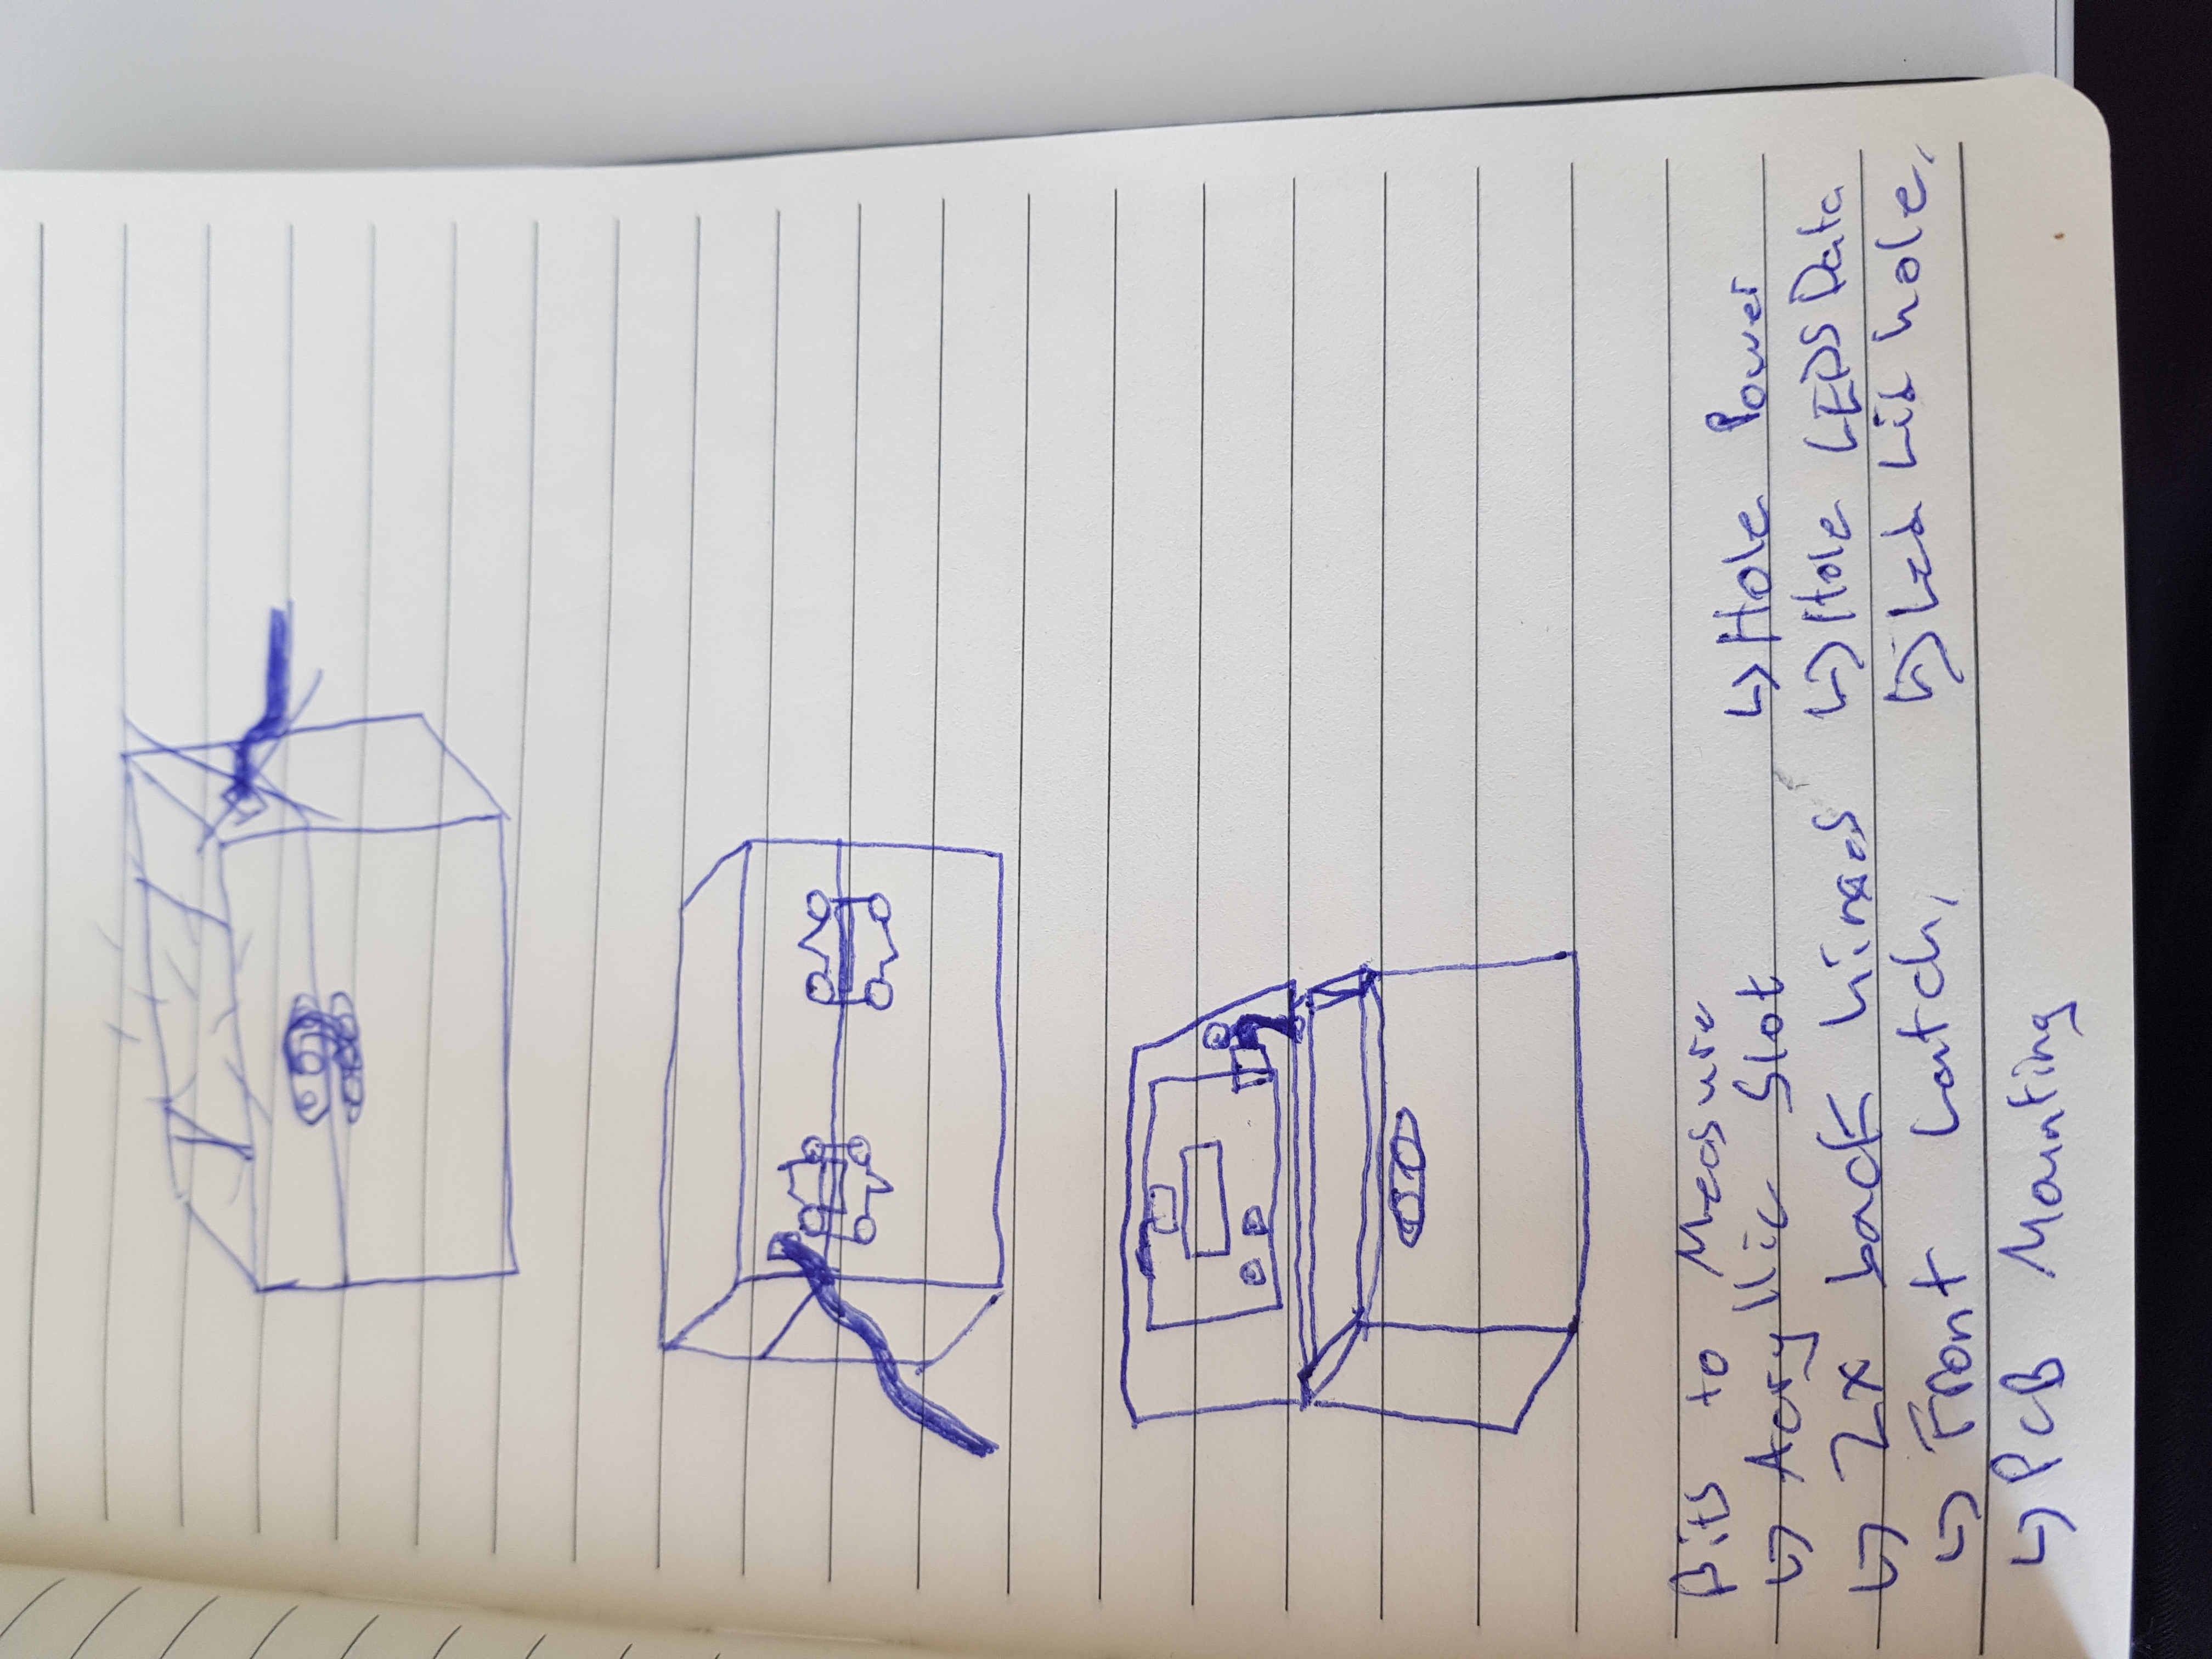 Bits to Measure
↳ Acryllic Slot
↳ 2x back hinges
↳ Front Latch,
↳ PCB Mounting
↳ Hole Power
↳ Hole LEDS Data
↳ Led Lid hole,